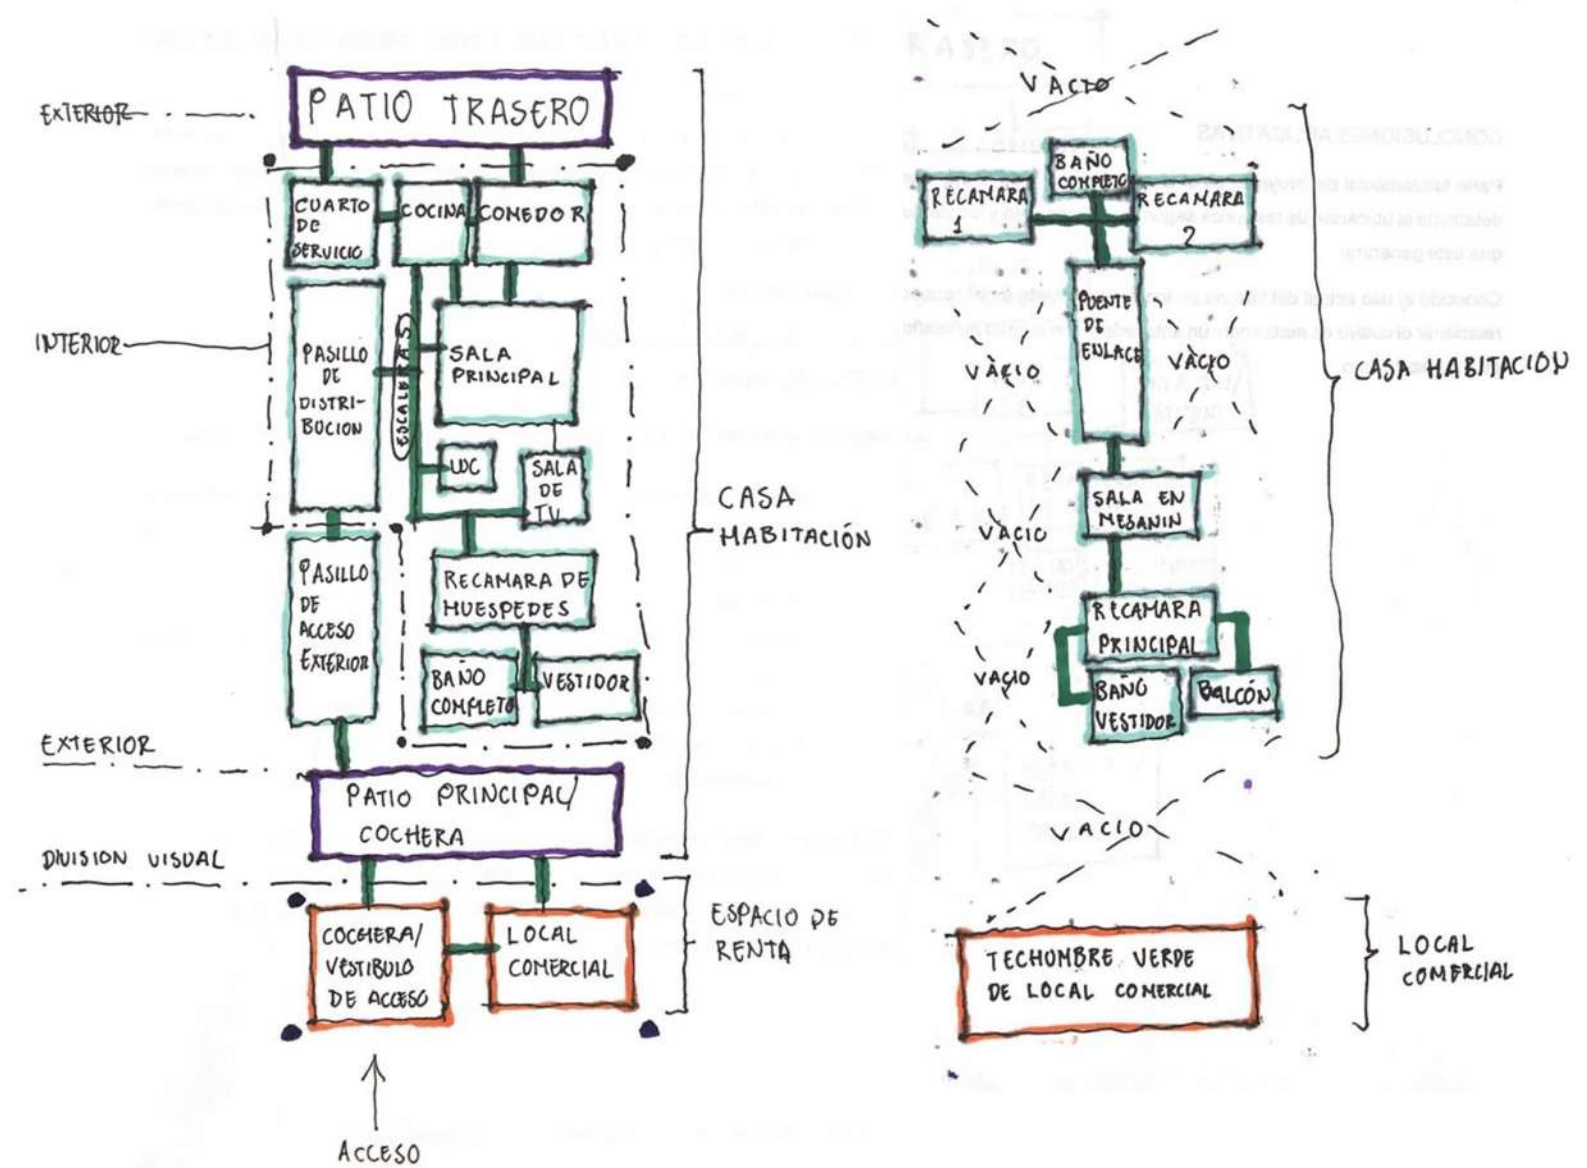 PATIO TRASERO
EXTERIOR
CUARTO
DE
SERVICIO
COCINA
COMEDOR
INTERIOR
PASILLO
DE
DISTRI-
BUCION
ESCALERAS
SALA
PRINCIPAL
WC
SALA
DE
TV
CASA
HABITACIÓN
PASILLO
DE
ACCESO
EXTERIOR
RECAMARA DE
HUESPEDES
BAÑO
COMPLETO
VESTIDOR
EXTERIOR
PATIO PRINCIPAL/
COCHERA
DIVISION VISUAL
COCHERA/
VESTIBULO
DE ACCESO
LOCAL
COMERCIAL
ESPACIO DE
RENTA
ACCESO
VACIO
BAÑO
COMPLETO
RECAMARA
1
RECAMARA
2
PUENTE
DE
ENLACE
VACIO
VACIO
CASA HABITACIÓN
SALA EN
MESANIN
VACIO
RECAMARA
PRINCIPAL
VACIO
BAÑO
VESTIDOR
BALCÓN
VACIO
TECHUMBRE VERDE
DE LOCAL COMERCIAL
LOCAL
COMERCIAL